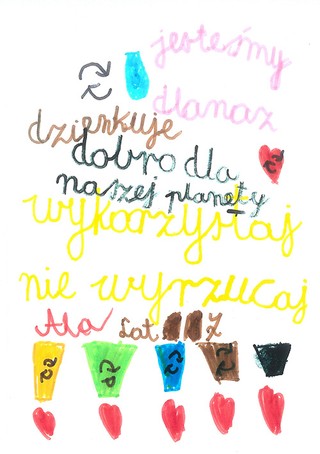 jesteśmy
dla nas
dzienkuje
dobro dla
naszej planety
wykorzystaj
nie wyrzucaj
Ala Lat 7